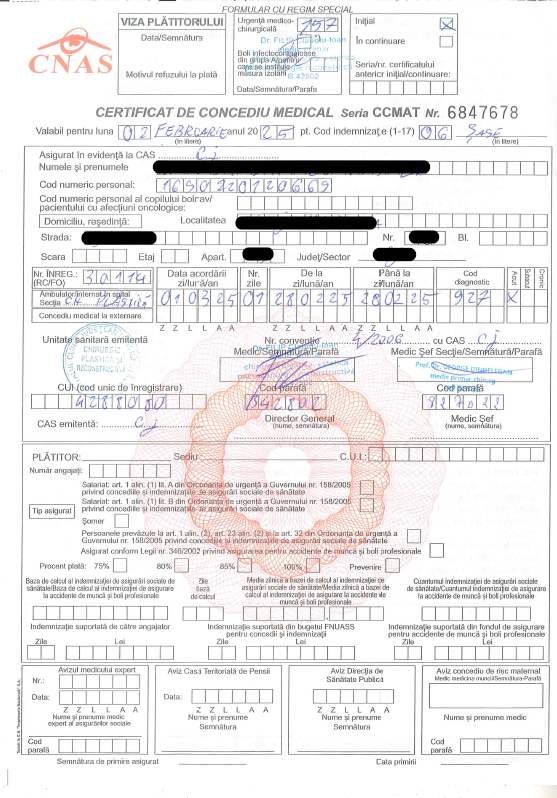 FORMULAR CU REGIM SPECIAL
CNAS
VIZA PLĂTITORULUI
Data/Semnătura
Motivul refuzului la plată
Urgență medico-chirurgicală 157
Boli infectocontagioase
din grupa A/pentru
care se instituie
măsura izolării
B 42802
Data/Semnătura/Parafa
Inițial X
În continuare
Seria/nr. certificatului
anterior inițial/continuare:
CERTIFICAT DE CONCEDIU MEDICAL Seria CCMAT Nr. 6847678
Valabil pentru luna 02 FEBRUARIE anul 2025 pt. Cod indemnizație (1-17) 06 ȘASE
(în litere) (în litere)
Asigurat în evidență la CAS Cj
Numele și prenumele
Cod numeric personal:
Cod numeric personal al copilului bolnav/
pacientului cu afecțiuni oncologice:
Domiciliu, reședință: Localitatea
Strada: Nr. Bl.
Scara Etaj Apart. Județ/Sector
Nr. ÎNREG.: (RC/FO) 30114
Data acordării zi/lună/an
Nr. zile
De la zi/lună/an
Până la zi/lună/an
Cod diagnostic
Acut
Subacut
Cronic
Ambulator/internat în spital
Secția CH. PLASTICĂ 010325 01 280225 280225 927 X
Concediu medical la externare
Z Z L L A A Z Z L L A A Z Z L L A A
Unitate sanitară emitentă Nr. convenție 4/2006 cu CAS Cj
CHIRURGIE
PLASTICĂ ȘI
RECONSTRUCTIVĂ
Medic/Semnătură/Parafă Medic Șef Secție/Semnătură/Parafă
medic primar chirurg
CUI (cod unic de înregistrare) Cod parafă Cod parafă
4288080 B42802 827022
CAS emitentă: Cj Director General Medic Șef
(nume, semnătura) (nume, semnătura)
PLĂTITOR: Sediu C.U.I.
Număr angajați:
Tip asigurat
Salariat: art. 1 alin. (1) lit. A din Ordonanța de urgență a Guvernului nr. 158/2005
privind concediile și indemnizațiile de asigurări sociale de sănătate
Salariat: art. 1 alin. (1) lit. B din Ordonanța de urgență a Guvernului nr. 158/2005
privind concediile și indemnizațiile de asigurări sociale de sănătate
Șomer
Persoanele prevăzute la art. 1 alin. (2), art. 23 alin. (2) și la art. 32 din Ordonanța de urgență a
Guvernului nr. 158/2005 privind concediile și indemnizațiile de asigurări sociale de sănătate
Asigurat conform Legii nr. 346/2002 privind asigurarea pentru accidente de muncă și boli profesionale
Procent plată: 75% 80% 85% 100% Prevenire
Baza de calcul al indemnizației de asigurări sociale de
sănătate/Baza de calcul al indemnizației de asigurare
la accidente de muncă și boli profesionale
Zile
bază
de calcul
Media zilnică a bazei de calcul al indemnizației de
asigurări sociale de sănătate/Media zilnică a bazei de
calcul al indemnizației de asigurare la accidente de
muncă și boli profesionale
Cuantumul indemnizației de asigurări sociale
de sănătate/Cuantumul indemnizației de asigurare
la accidente de muncă și boli profesionale
Indemnizație suportată de către angajator
Zile Lei
Indemnizație suportată din bugetul FNUASS
pentru concedii și indemnizații
Zile Lei
Indemnizație suportată din fondul de asigurare
pentru accidente de muncă și boli profesionale
Zile Lei
Avizul medicului expert
Nr.:
Data:
Z Z L L A A
Nume și prenume medic
expert al asigurărilor sociale
Cod
parafă
Aviz Casă Teritorială de Pensii
Data:
Z Z L L A A
Nume și prenume
Semnătura
Aviz Direcția de
Sănătate Publică
Z Z L L A A
Nume și prenume
Semnătura
Aviz concediu de risc maternal
Medic medicina muncii/Semnătura-Parafă
Nume și prenume medic
Cod
parafă
Semnătura de primire asigurat Data primirii